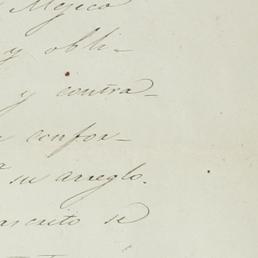 Mejico
y obli-
y contra-
confor-
su arreglo.
se